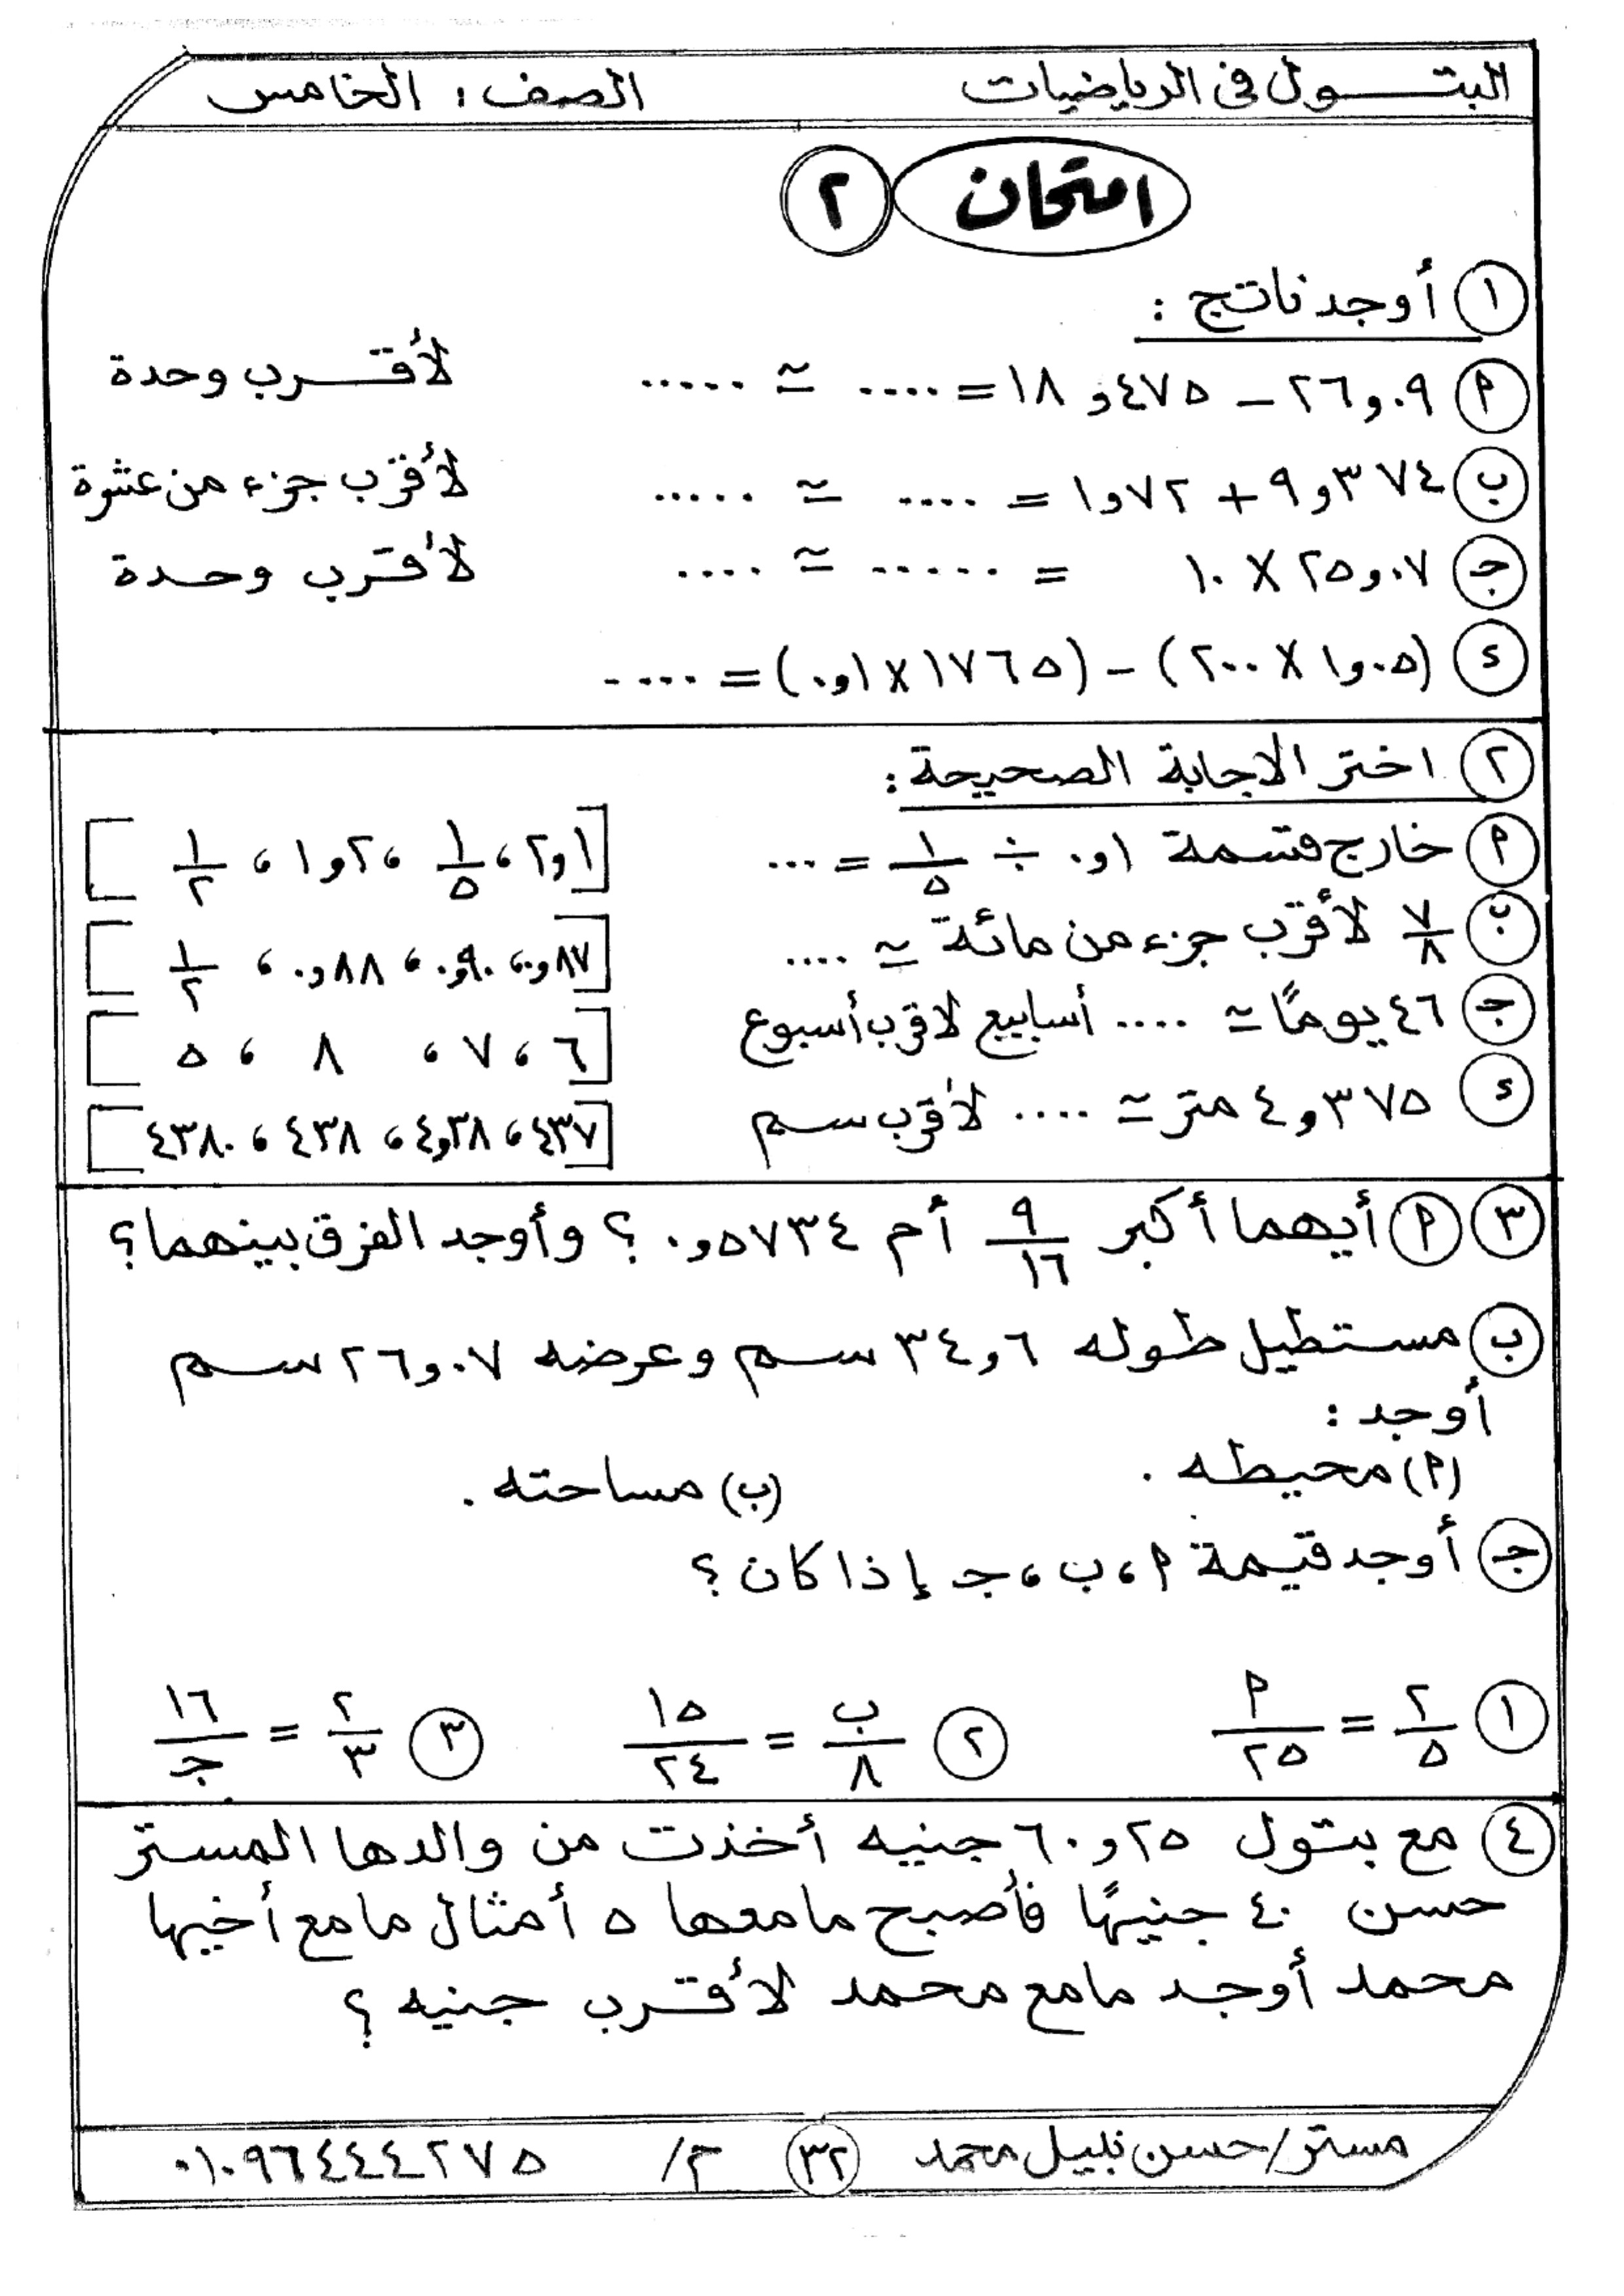 البتــول فى الرياضيات الصف : الخامس
امتحان ٢
١ أوجد ناتج :
أ ٢٦,٠٩ – ١٨,٤٧٥ = .... ≃ ..... لأقــرب وحدة
ب ٩,٣٧٤ + ١,٧٢ = .... ≃ ..... لأقرب جزء من عشرة
جـ ٢٥,٠٧ × ١٠ = ..... ≃ .... لأقرب وحدة
د (١,٠٥ × ٢٠٠) – (١٧٦٥ × ٠,١) = ....
٢ اختر الاجابة الصحيحة :
أ خارج قسمة ٠,١ ÷ ١/٥ = ... [٢,١ ، ١/٥ ، ١,٢ ، ١/٢]
ب ٧/٨ لأقرب جزء من مائة ≃ .... [٠,٨٧ ، ٠,٩٠ ، ٠,٨٨ ، ١/٢]
جـ ٤٦ يومًا ≃ .... أسابيع لاقرب أسبوع [٦ ، ٧ ، ٨ ، ٥]
د ٤,٣٧٥ متر ≃ .... لأقرب سم [٤٣٧ ، ٤,٣٨ ، ٤٣٨ ، ٤٣٨٠]
٣ أ أيهما أكبر ٩/١٦ أم ٠,٥٧٣٤ ؟ وأوجد الفرق بينهما ؟
ب مستطيل طوله ٣٤,٦ سم وعرضه ٢٦,٠٧ سم
أوجد :
(أ) محيطه . (ب) مساحته .
جـ أوجد قيمة أ ، ب ، جـ إذا كان ؟
١ ٢/٥ = أ/٢٥ ٢ ب/٨ = ١٥/٢٤ ٣ ٢/٣ = ١٦/جـ
٤ مع بتول ٦٠,٢٥ جنيه أخذت من والدها المستر
حسن ٤٠ جنيهًا فأصبح مامعها ٥ أمثال مامع أخيها
محمد أوجد مامع محمد لأقــرب جنيه ؟
مستر/ حسن نبيل محمد ٣٢ م/ ٠١٠٩٦٤٤٤٢٧٥